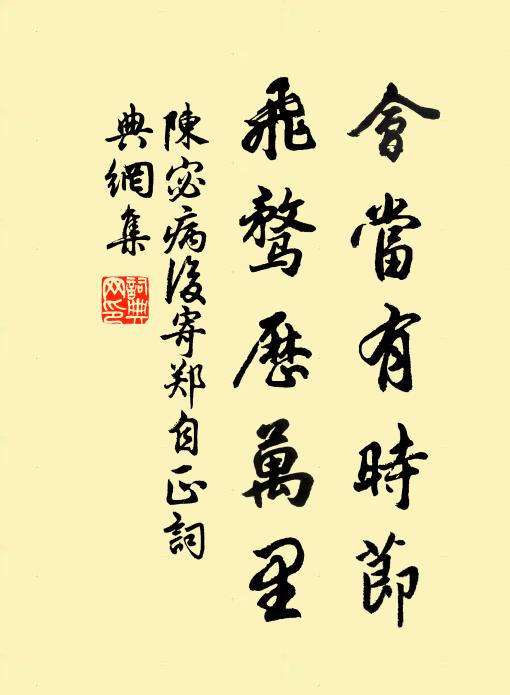 會當有時節
飛鶩歷萬里
陳宓病後寄郑自正詞
典網集
詞典
网印